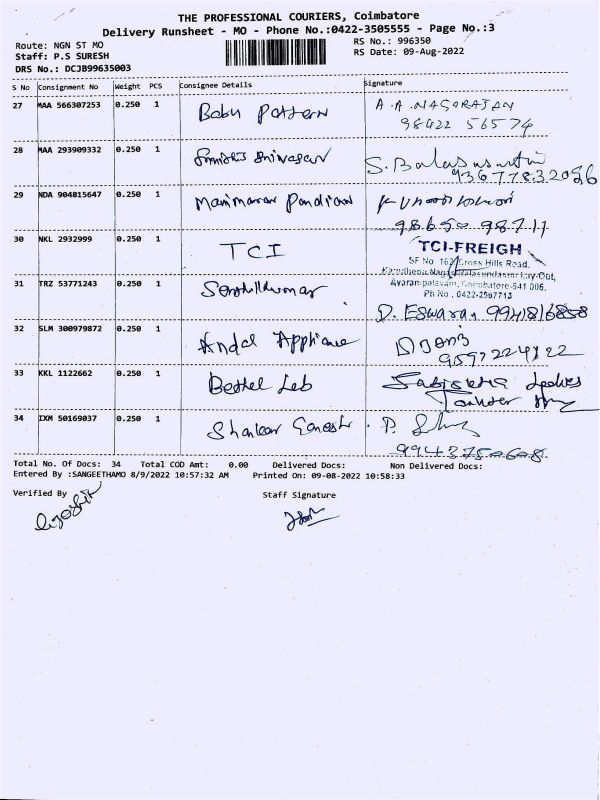 THE PROFESSIONAL COURIERS, Coimbatore
Delivery Runsheet - MO - Phone No.:0422-3505555 - Page No.:3
Route: NGN ST MO
RS No.: 996350
Staff: P.S SURESH
RS Date: 09-Aug-2022
DRS No.: DCJB99635003
S No Consignment No Weight PCS Consignee Details Signature
27 MAA 566307253 0.250 1 Babu Pattern A.A.NAGARAJAN
98422 56574
28 MAA 293909332 0.250 1 Srinivasan S. Balasu
93677832056
29 NDA 904815647 0.250 1 Manimaran Pandian
98650 98711
30 NKL 2932999 0.250 1 TCI TCI-FREIGH
SF No 162 Cross Hills Road,
Lay-Out,
Avarampalayam, Coimbatore-641 006.
Ph No . 0422-2567713
31 TRZ 53771243 0.250 1 Senthilkumar
D. Eswaran 9941816858
32 SLM 300979872 0.250 1 Andal Appliance
9597224122
33 KKL 1122662 0.250 1 Bethel Lab
34 IXM 50169037 0.250 1 Shankar Ganesh P.
9943750608
Total No. Of Docs: 34 Total COD Amt: 0.00 Delivered Docs: Non Delivered Docs:
Entered By :SANGEETHAMO 8/9/2022 10:57:32 AM Printed On: 09-08-2022 10:58:33
Verified By
Staff Signature